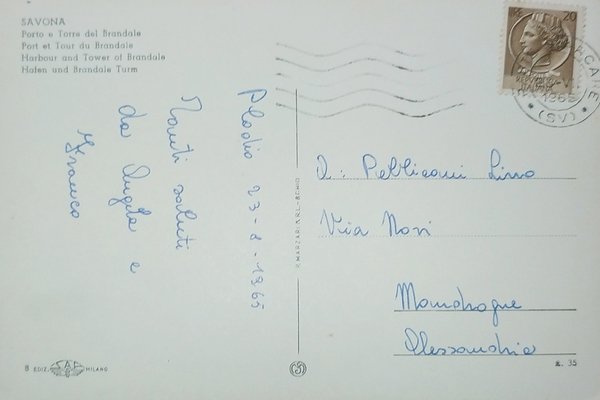 SAVONA
Porto e Torre del Brandale
Port et Tour du Brandale
Harbour and Tower of Brandale
Hafen und Brandale Turm
Plodio 23-8-1965
Tanti saluti
da Angela e
Franco
20
1965
(SV)
D: Pelliccioni Lino
Via Novi
Mandrogne
Alessandria
8 EDIZ. SAF MILANO
V. MARZARI S.R.L. - SCHIO
L. 35